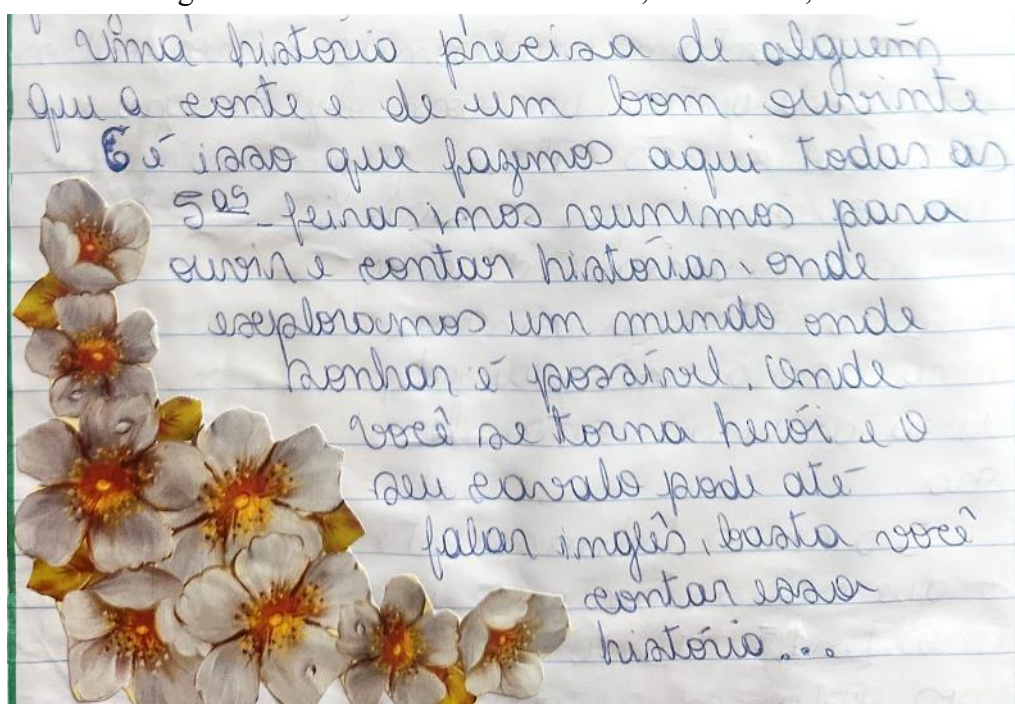 Uma história precisa de alguém
que a conte e de um bom ouvinte
E é isso que fazemos aqui todas as
5as feiras, nos reunimos para
ouvir e contar histórias, onde
exploramos um mundo onde
sonhar é possível. Onde
você se torna herói e o
seu cavalo pode até
falar inglês, basta você
contar essa
história...